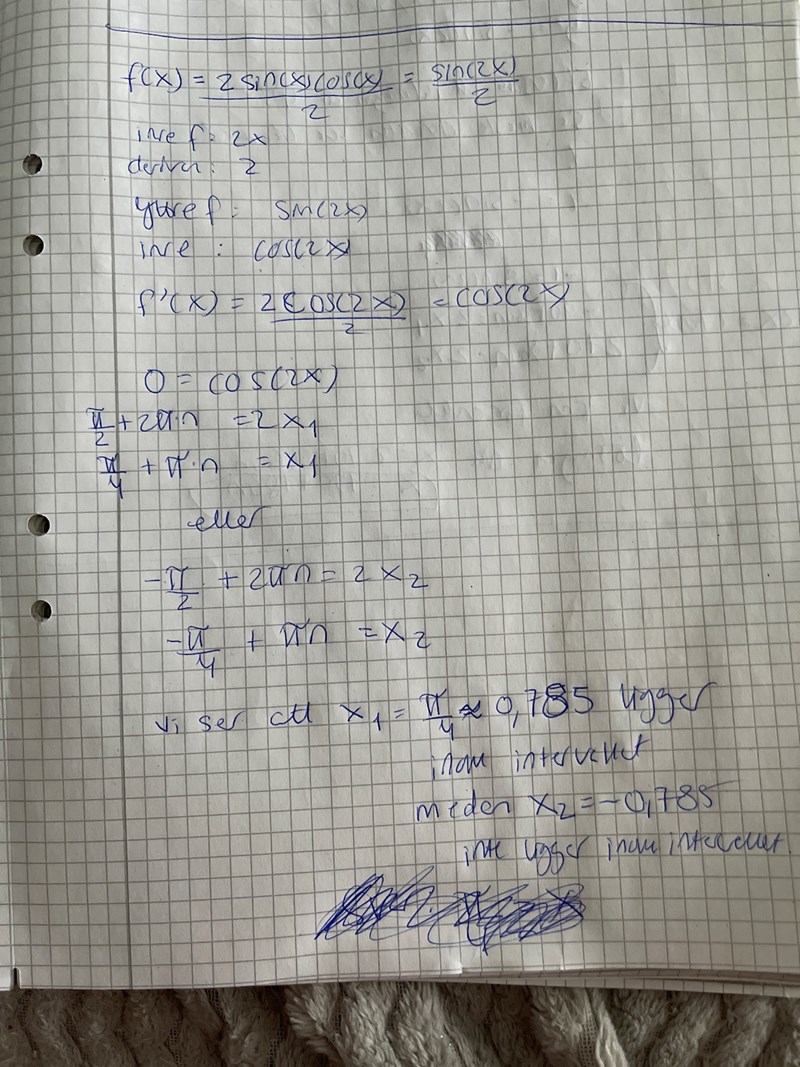 f(x) = 2 sin(x) cos(x) / 2 = sin(2x) / 2
inre f: 2x
deriver: 2
yttre f: sin(2x)
inre : cos(2x)
f'(x) = 2 cos(2x) / 2 = cos(2x)
0 = cos(2x)
π/2 + 2π·n = 2x₁
π/4 + π·n = x₁
eller
-π/2 + 2πn = 2x₂
-π/4 + πn = x₂
vi ser att x₁ = π/4 ≈ 0,785 ligger
inom intervallet
medan x₂ = -0,785
inte ligger inom intervallet.